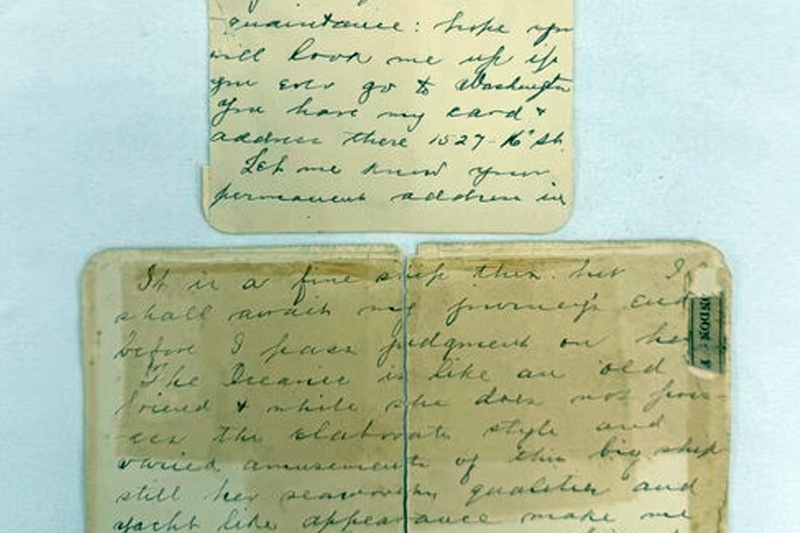 quaintance: hope you
will look me up if
you ever go to Washington
You have my card &
address there 1527-16" St.
Let me know your
permanent address in
It is a fine ship this but I
shall await my journey's end
before I pass judgment on her
The Oceanic is like an old
friend & while she does not poss-
ess the elaborate style and
varied amusements of this big ship
still her seaworthy qualities and
yacht like appearance make me
ONDON: